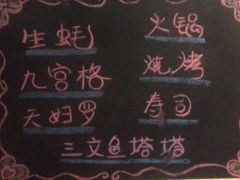 生蚝 火锅
九宫格 烧烤
天妇罗 寿司
三文鱼塔塔